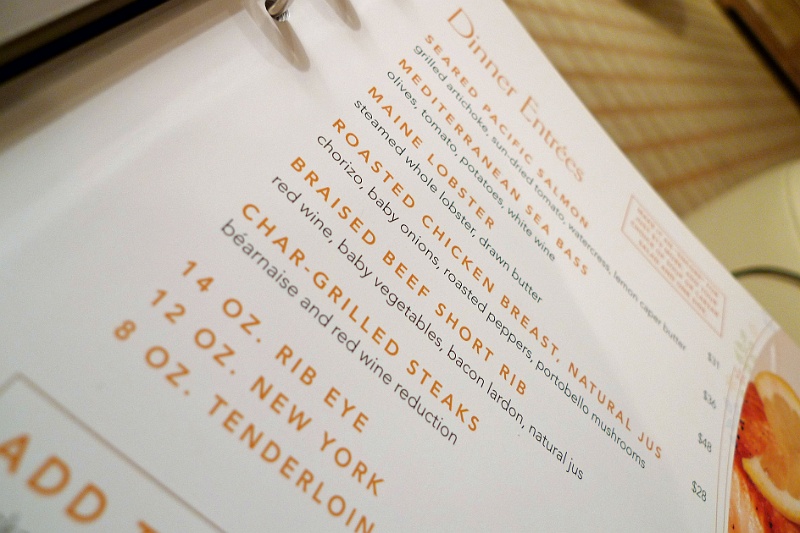 Dinner Entrées
SEARED PACIFIC SALMON
grilled artichoke, sun-dried tomato, watercress, lemon caper butter $31
MEDITERRANEAN SEA BASS
olives, tomato, potatoes, white wine $36
MAINE LOBSTER
steamed whole lobster, drawn butter $48
ROASTED CHICKEN BREAST, NATURAL JUS
chorizo, baby onions, roasted peppers, portobello mushrooms $28
BRAISED BEEF SHORT RIB
red wine, baby vegetables, bacon lardon, natural jus
CHAR-GRILLED STEAKS
béarnaise and red wine reduction
14 OZ. RIB EYE
12 OZ. NEW YORK
8 OZ. TENDERLOIN
ADD